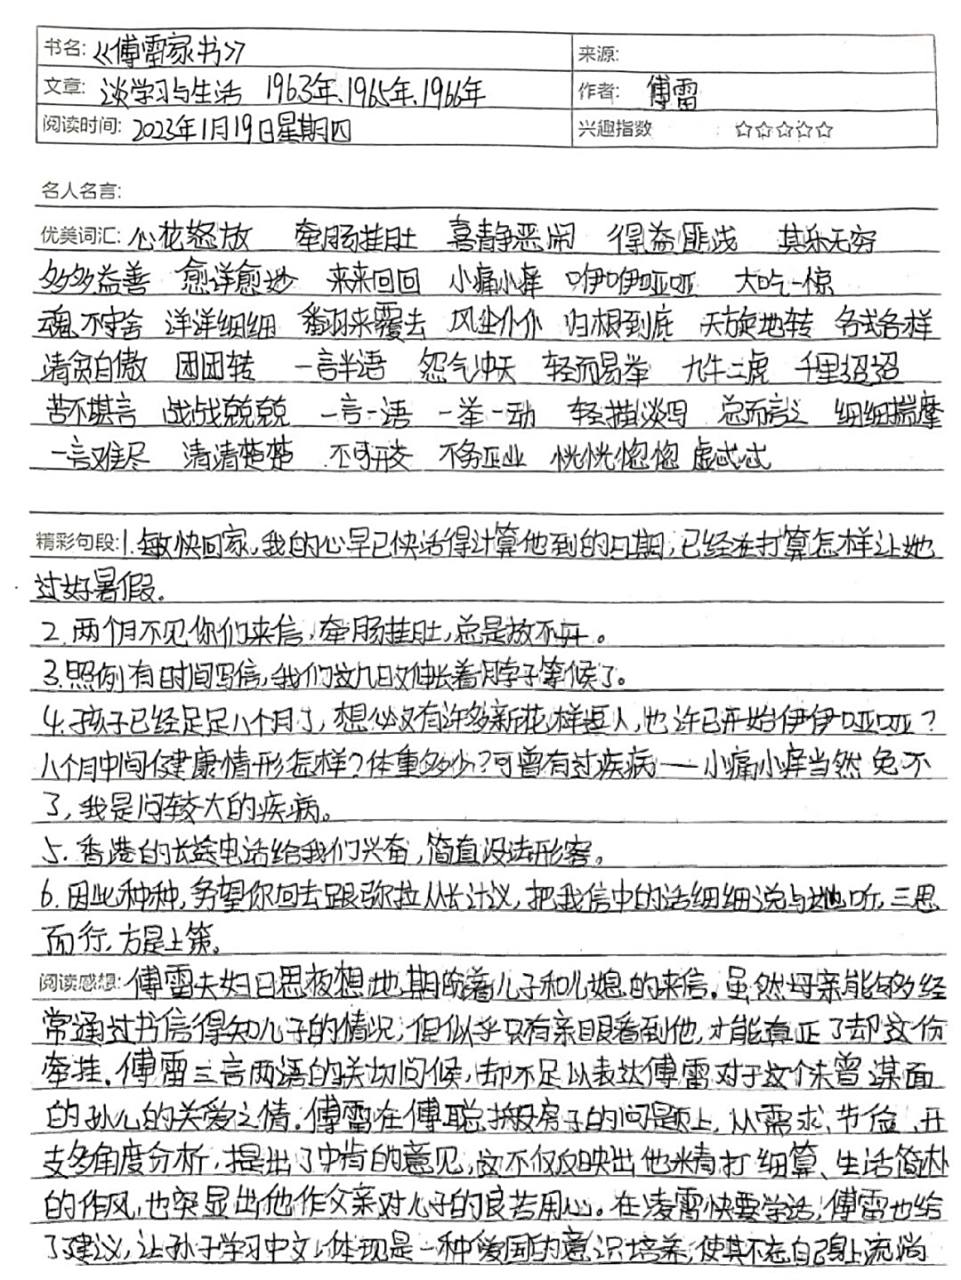 书名: 《傅雷家书》 来源:
文章: 谈学习与生活 1963年、1965年、1966年 作者: 傅雷
阅读时间: 2023年1月19日星期四 兴趣指数 : ☆☆☆☆☆
名人名言:
优美词汇: 心花怒放 牵肠挂肚 喜静恶闹 得益匪浅 其乐无穷
多多益善 愈详愈妙 来来回回 小痛小痒 咿咿哑哑 大吃一惊
魂不守舍 洋洋细细 翻来覆去 风尘仆仆 归根到底 天旋地转 各式各样
清贫自傲 团团转 一言半语 怨气冲天 轻而易举 九牛二虎 千里迢迢
苦不堪言 战战兢兢 一言一语 一举一动 轻描淡写 总而言之 细细揣摩
一言难尽 清清楚楚 不可开交 不务正业 恍恍惚惚 虚忒忒
精彩句段: 1.敏快回家,我的心早已快活得计算他到的日期,已经在打算怎样让她
过好暑假。
2.两个月不见你们来信,牵肠挂肚,总是放不开。
3.照例有时间写信,我们这几日又伸长着脖子等候了。
4.孩子已经足足八个月了,想必又有许多新花样逗人,也许已开始伊伊哑哑?
八个月中间健康情形怎样?体重多少?可曾有过疾病——小痛小痒当然免不
了,我是问较大的疾病。
5.香港的长途电话给我们兴奋,简直没法形容。
6.因此种种,务望你回去跟弥拉从长计议,把我信中的话细细说与她听,三思
而行,方是上策。
阅读感想: 傅雷夫妇日思夜想地期盼着儿子和儿媳的来信。虽然母亲能够经
常通过书信得知儿子的情况,但似乎只有亲眼看到他,才能真正了却这份
牵挂。傅雷三言两语的关切问候,却不足以表达傅雷对于这个未曾谋面
的孙儿的关爱之情。傅雷在傅聪搬房子的问题上,从需求、节俭、开
支多角度分析,提出了中肯的意见,这不仅反映出他精打细算、生活简朴
的作风,也突显出他作父亲对儿子的良苦用心。在凌霄快要学话,傅雷也给
了建议,让孙子学习中文,体现是一种爱国的意识培养,使其不忘自己身上流淌